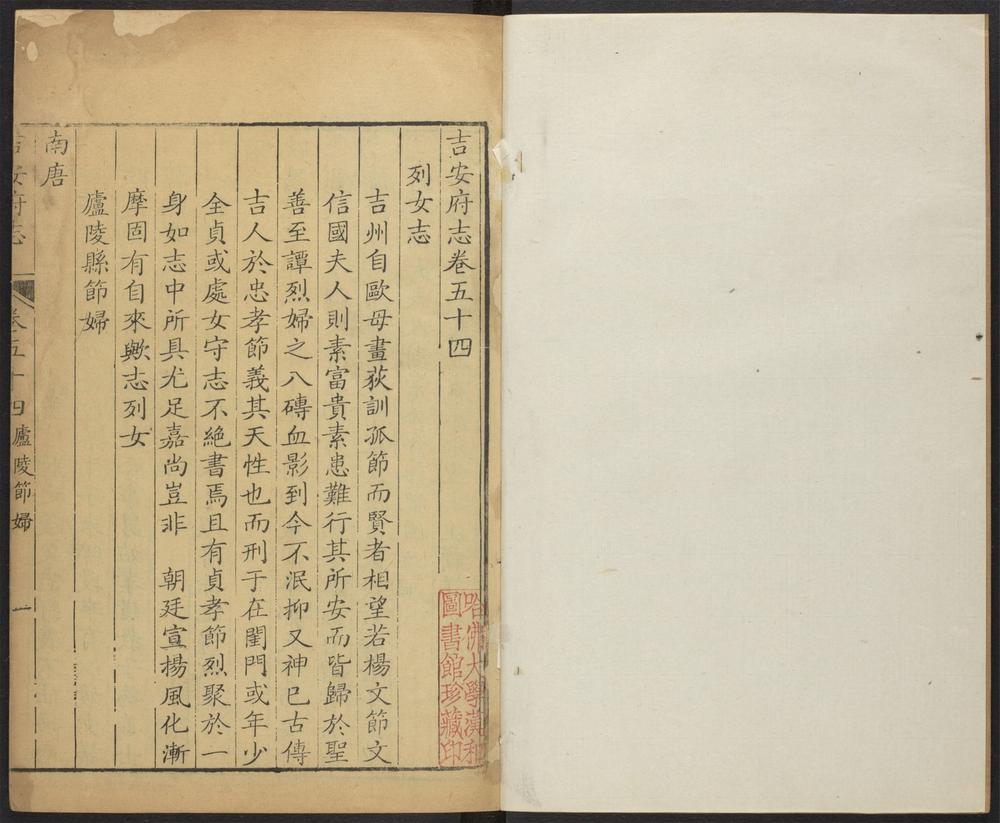 吉安府志卷五十四
列女志
吉州自歐母畫荻訓孤節而賢者相望若楊文節文
信國夫人則素富貴素患難行其所安而皆歸於聖
善至譚烈婦之八磚血影到今不泯抑又神已古傳
吉人於忠孝節義其天性也而刑于在閨門或年少
全貞或處女守志不絕書焉且有貞孝節烈聚於一
身如志中所具尤足嘉尚豈非　朝廷宣揚風化漸
摩固有自來歟志列女
廬陵縣節婦
南唐
吉安府志　卷五十四　廬陵節婦　一
哈佛大學漢和
圖書館珍藏印